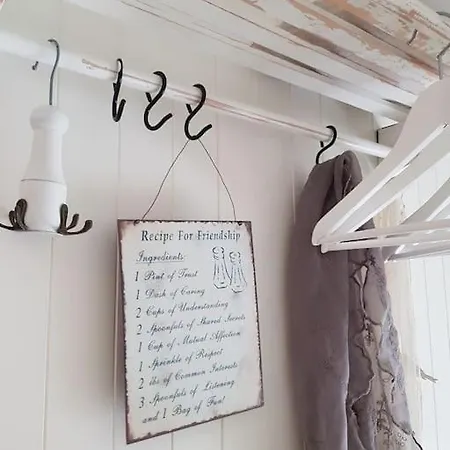 Recipe For Friendship
Ingredients:
1 Pint of Trust
1 Dash of Caring
2 Cups of Understanding
2 Spoonfuls of Shared Secrets
1 Cup of Mutual Affection
1 Sprinkle of Respect
2 lbs of Common Interests
3 Spoonfuls of Listening
and 1 Bag of Fun!